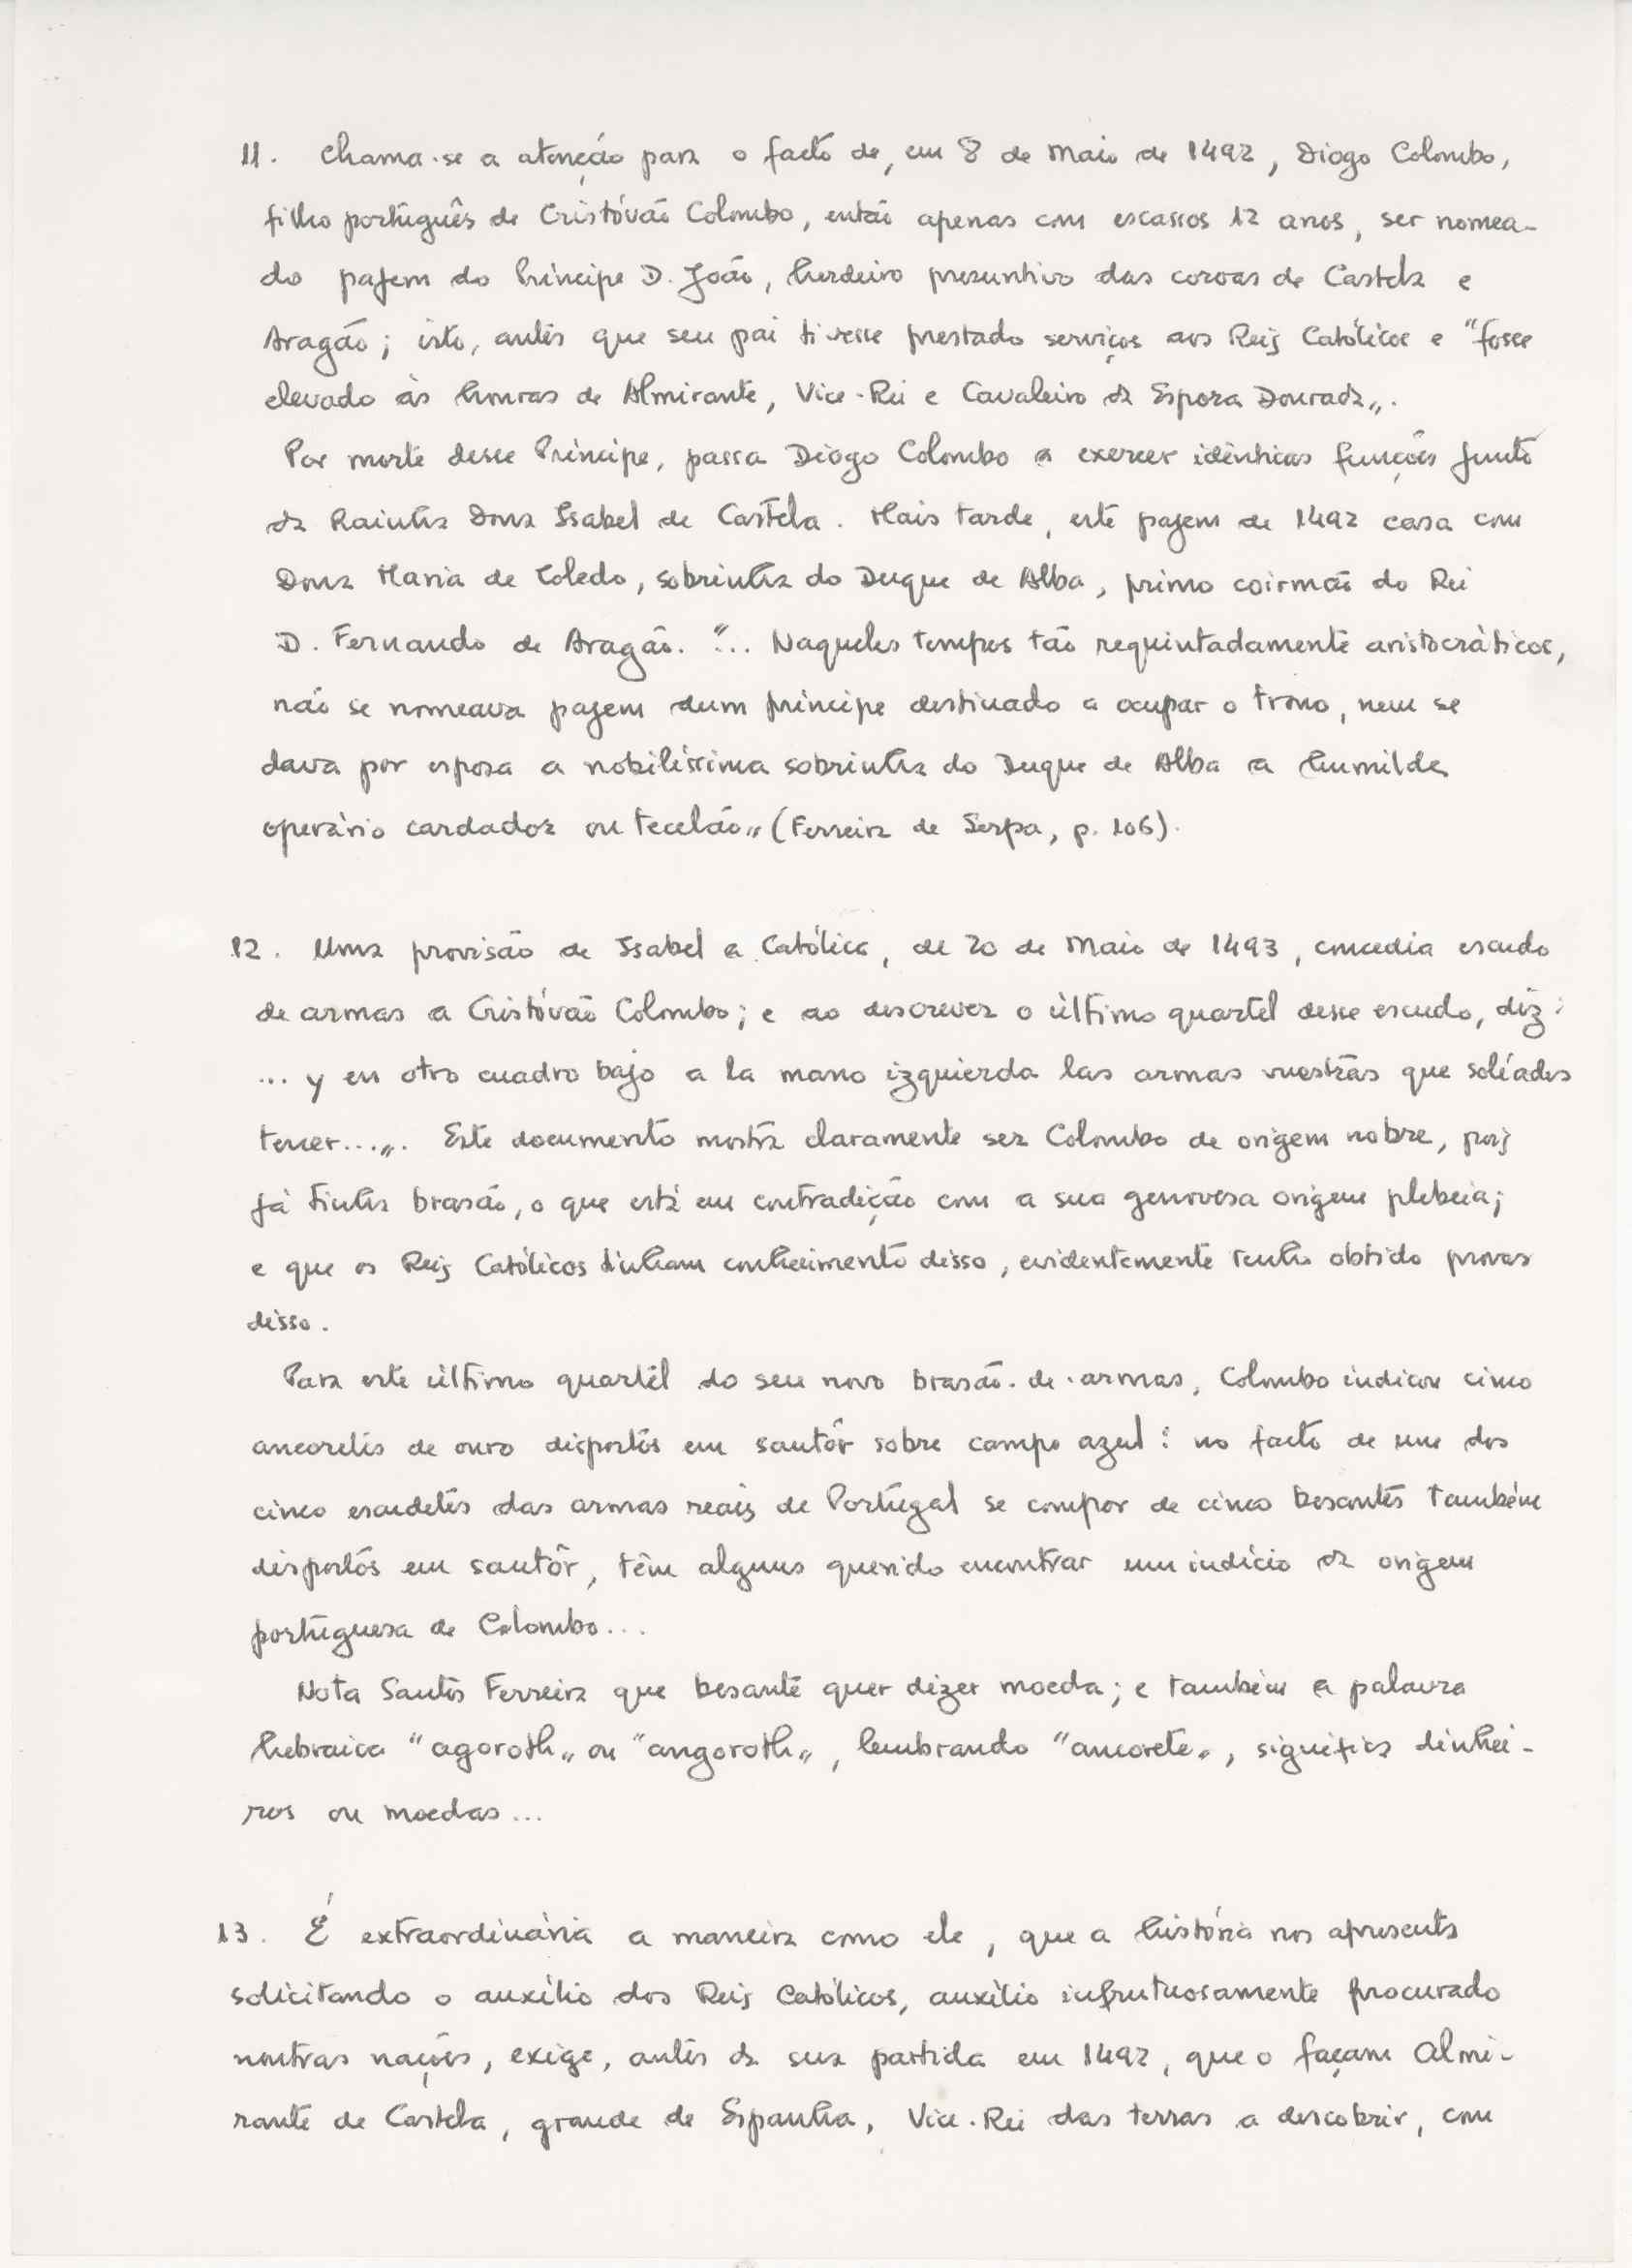 11. Chama-se a atenção para o facto de, em 8 de Maio de 1492, Diogo Colombo,
filho português de Cristóvão Colombo, então apenas com escassos 12 anos, ser nomea-
do pajem do Príncipe D. João, herdeiro presuntivo das coroas de Castela e
Aragão; isto, antes que seu pai tivesse prestado serviços aos Reis Católicos e "fosse
elevado às honras de Almirante, Vice-Rei e Cavaleiro da Espora Dourada„.
Por morte desse Príncipe, passa Diogo Colombo a exercer idênticas funções junto
da Rainha Dona Isabel de Castela. Mais tarde, este pajem de 1492 casa com
Dona Maria de Toledo, sobrinha do Duque de Alba, primo coirmão do Rei
D. Fernando de Aragão. "... Naqueles tempos tão requintadamente aristocráticos,
não se nomeava pajem dum príncipe destinado a ocupar o trono, nem se
dava por esposa a nobilíssima sobrinha do Duque de Alba a humilde
operário cardador ou tecelão„ (Ferreira de Serpa, p. 106).
12. Uma provisão de Isabel a Católica, de 20 de Maio de 1493, concedia escudo
de armas a Cristóvão Colombo; e ao descrever o último quartel desse escudo, diz:
... y en otro cuadro bajo a la mano izquierda las armas vuestras que solíades
tener...„. Este documento mostra claramente ser Colombo de origem nobre, pois
já tinha brasão, o que está em contradição com a sua genovesa origem plebeia;
e que os Reis Católicos tinham conhecimento disso, evidentemente tenho obtido provas
disso.
Para este último quartel do seu novo brasão-de-armas, Colombo indicou cinco
ancoretes de ouro dispostos em santôr sobre campo azul: no facto de um dos
cinco escudetes das armas reais de Portugal se compor de cinco besantes também
dispostos em santôr, têm alguns querido encontrar um indício da origem
portuguesa de Colombo...
Nota Santos Ferreira que besante quer dizer moeda; e também a palavra
hebraica "agoroth„ ou "angoroth„, lembrando "ancorete„, significa dinhei-
ros ou moedas...
13. É extraordinária a maneira como ele, que a história nos apresenta
solicitando o auxílio dos Reis Católicos, auxílio infrutuosamente procurado
noutras nações, exige, antes da sua partida em 1492, que o façam Almi-
rante de Castela, grande de Espanha, Vice-Rei das terras a descobrir, com